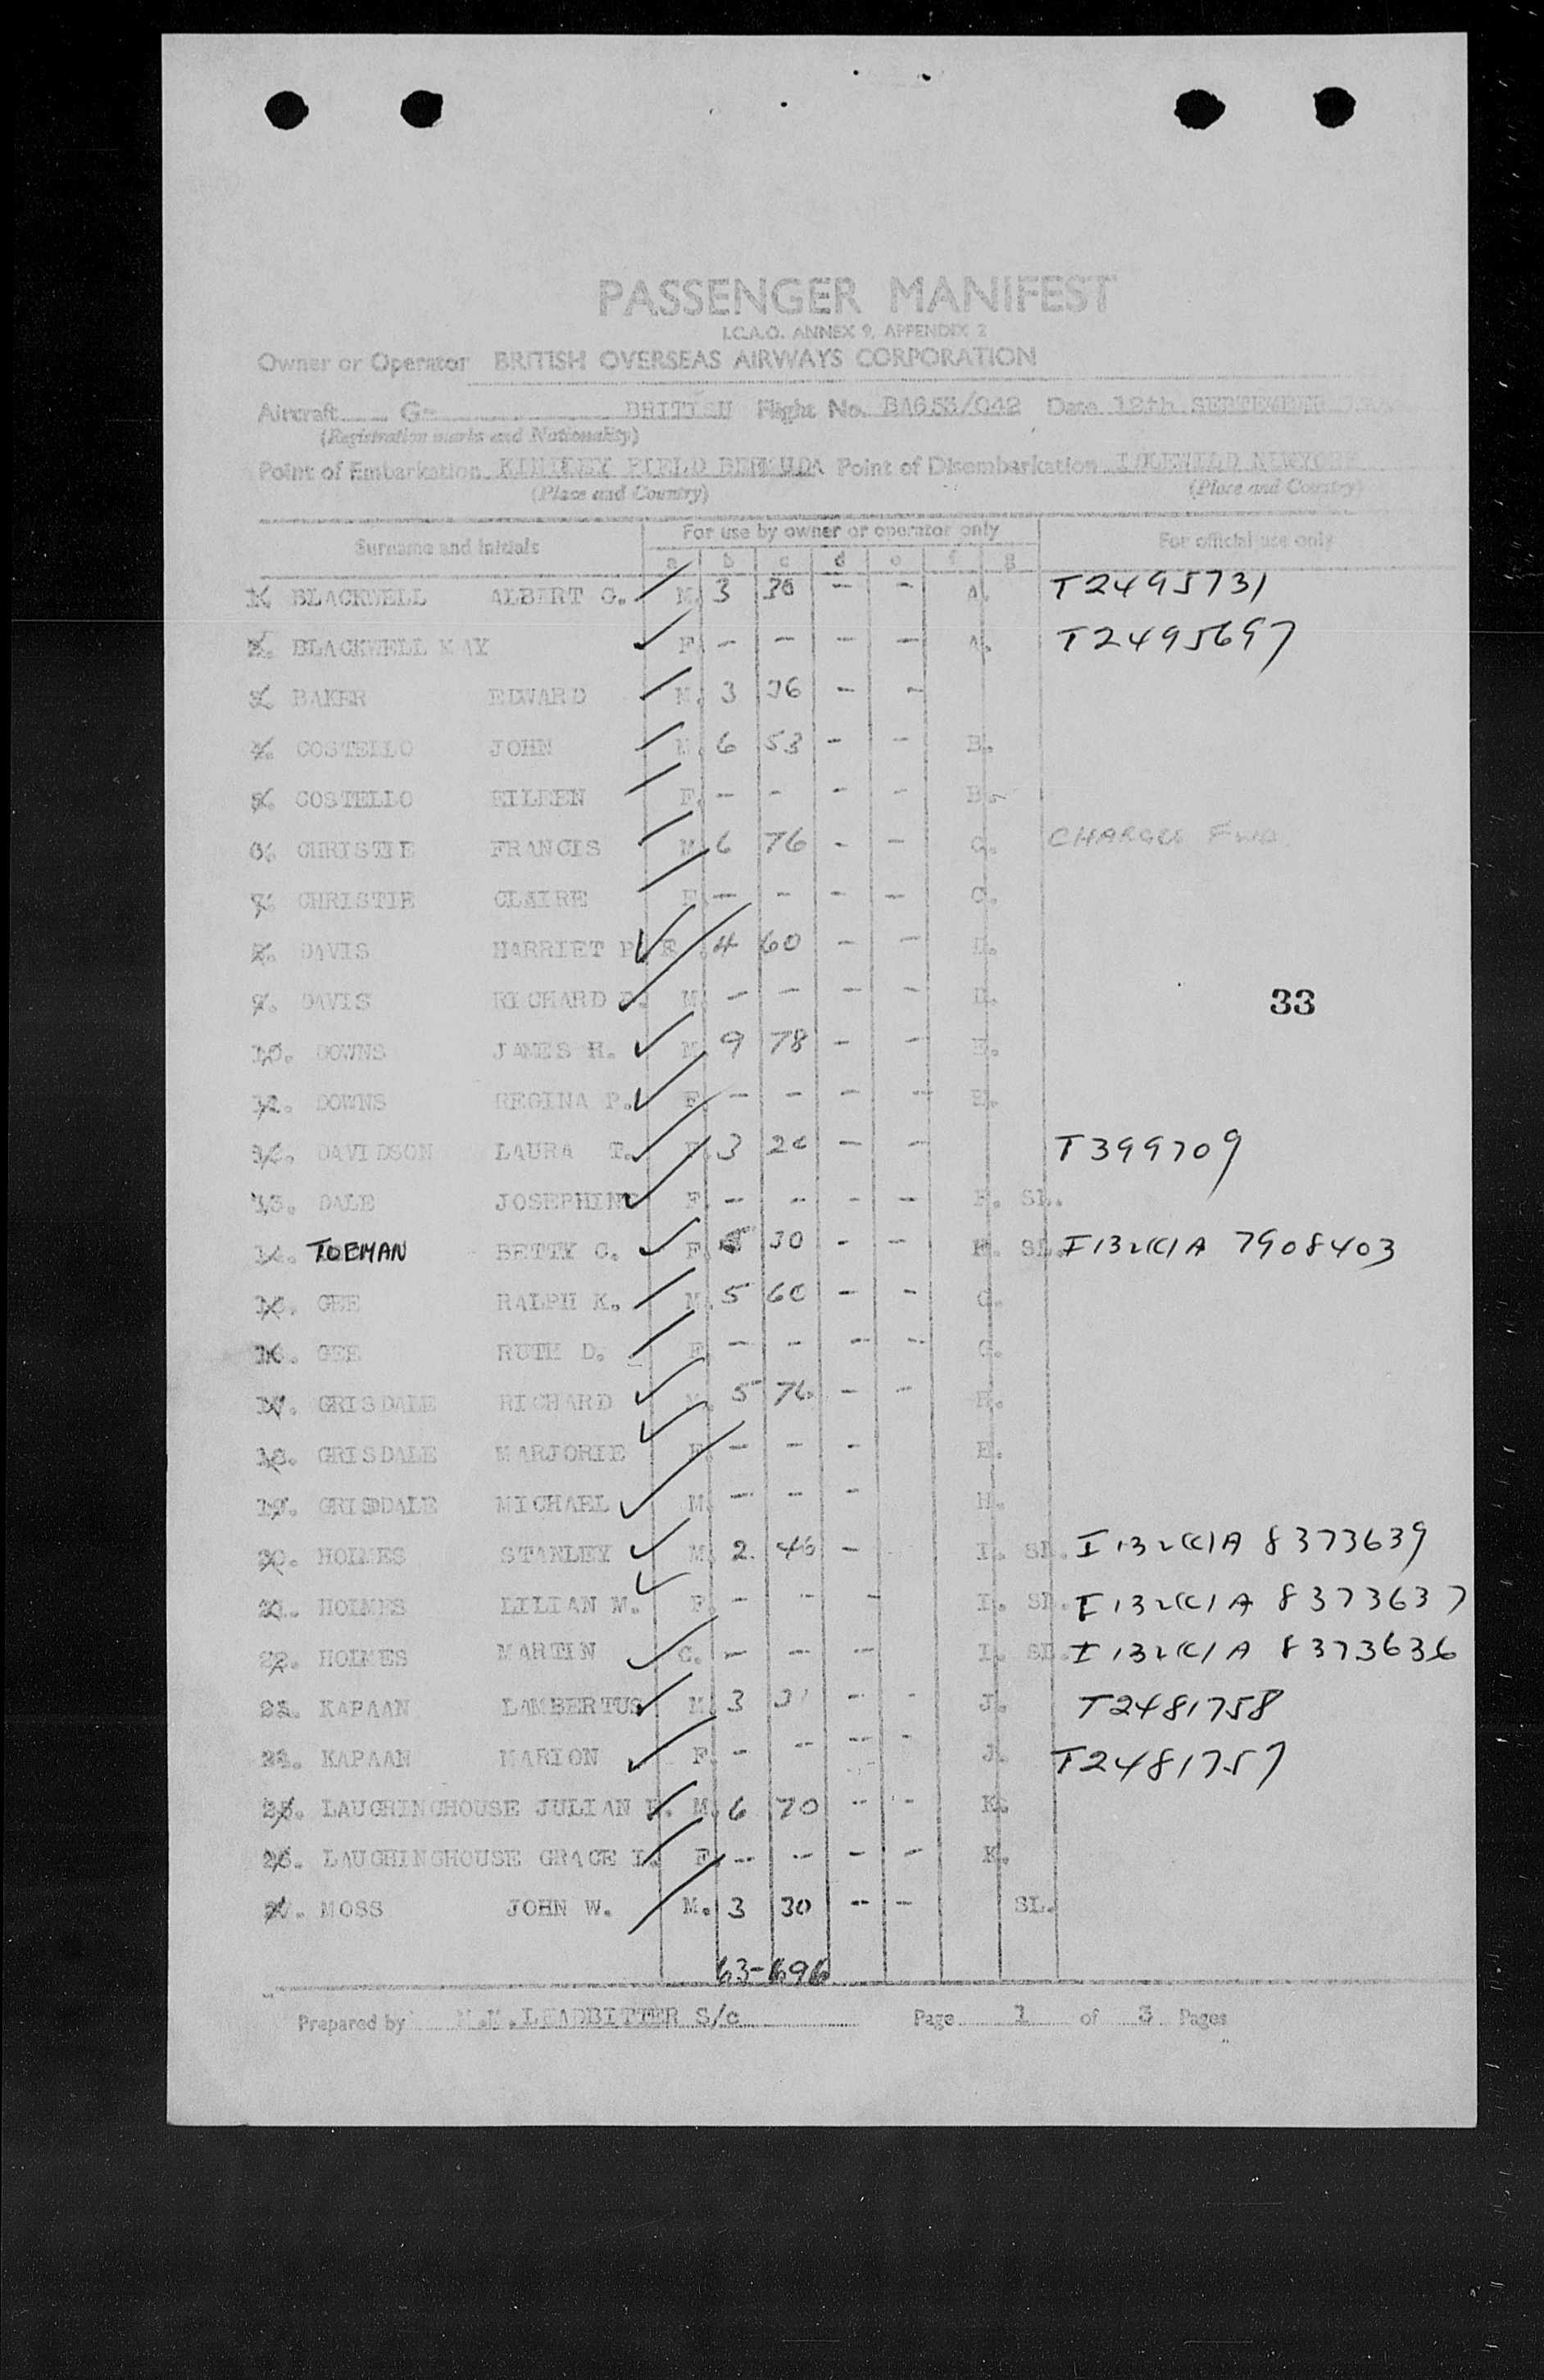 PASSENGER MANIFEST
I.C.A.O. ANNEX 9, APPENDIX 2
Owner or Operator BRITISH OVERSEAS AIRWAYS CORPORATION
Aircraft G- BRITISH Flight No. BA653/042 Date 12th SEPTEMBER
(Registration marks and Nationality)
Point of Embarkation KINDLEY FIELD BERMUDA Point of Disembarkation IDLEWILD NEWYORK
(Place and Country) (Place and Country)
Surname and initials For use by owner or operator only For official use only
a b c d e f g
1. BLACKWELL ALBERT G. M. 3 30 - - A. T2495731
2. BLACKWELL MAY F. - - - - A. T2495697
3. BAKER EDWARD M. 3 36 - -
4. COSTELLO JOHN M. 6 53 - - B.
5. COSTELLO EILEEN F. - - - - B.
6. CHRISTIE FRANCIS M. 6 76 - - C. CHARGES FWD.
7. CHRISTIE CLAIRE F. - - - - C.
8. DAVIS HARRIET P. F. 4 60 - - D.
9. DAVIS RICHARD M. - - - - D.
33
10. DOWNS JAMES H. M. 9 78 - - E.
DOWNS REGINA P. F. - - - - E.
DAVIDSON LAURA T. F. 3 - - T399709
13. DALE JOSEPHINE F. - - - - F. SL.
14. TOEMAN BETTY C. F. 30 - - F. SL. I132(C)A 7908403
15. GEE RALPH K. M. 5 60 - - G.
16. GEE RUTH D. F. - - - - G.
17. GRISDALE RICHARD M. 5 76 - - H.
18. GRISDALE MARJORIE F. - - - H.
19. GRISDDALE MICHAEL M. - - - H.
20. HOLMES STANLEY M. 2. 46 - I. SL. I132(C)A 8373639
21. HOLMES LILIAN M. F. - - - I. SL. I132(C)A 8373637
22. HOLMES MARTIN C. - - - I. SL. I132(C)A 8373636
23. KAPAAN LAMBERTUS M. 3 31 - - J. T2481758
24. KAPAAN MARION F. - - - - J. T2481757
25. LAUGHINGHOUSE JULIAN M. 6 70 - - K.
26. LAUGHINGHOUSE GRACE I. F. - - - - K.
27. MOSS JOHN W. M. 3 30 - - SL.
63-696
Prepared by M.M.LEADBITTER S/c Page 1 of 3 Pages